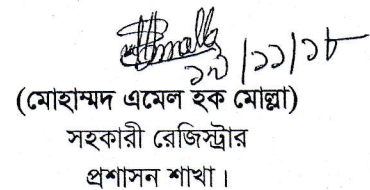 ১৩/১১/১৮
(মোহাম্মদ এমেল হক মোল্লা)
সহকারী রেজিস্ট্রার
প্রশাসন শাখা।